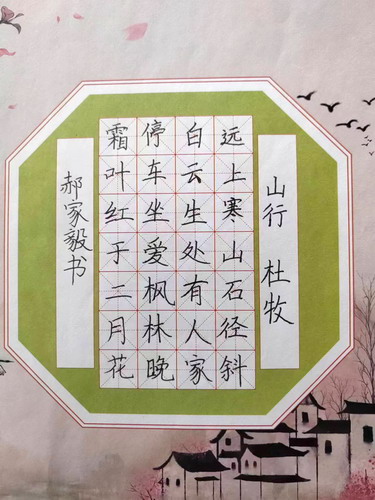 山行 杜牧
远上寒山石径斜
白云生处有人家
停车坐爱枫林晚
霜叶红于二月花
郝家毅书